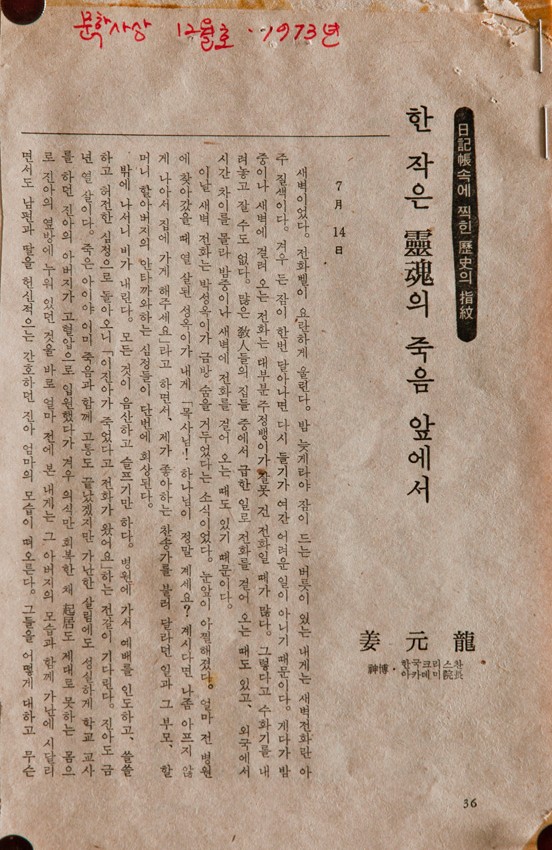 문학사상 12월호 · 1973년
日記帳속에 찍힌 歷史의 指紋
한 작은 靈魂의 죽음 앞에서
姜元龍
神博 · 한국크리스찬
아카데미院長
7月 14日
새벽이었다. 전화벨이 요란하게 울린다. 밤 늦게라야 잠이 드는 버릇이 있는 내게는 새벽전화란 아
주 질색이다. 겨우 든 잠이 한번 달아나면 다시 들기가 여간 어려운 일이 아니기 때문이다. 게다가 밤
중이나 새벽에 걸려 오는 전화는 대부분 주정뱅이가 잘못 건 전화일 때가 많다. 그렇다고 수화기를 내
려놓고 잘 수도 없다. 많은 敎人들의 집들 중에서 급한 일로 전화를 걸어 오는 때도 있고, 외국에서
시간 차이를 몰라 밤중이나 새벽에 전화를 걸어 오는 때도 있기 때문이다.
이날 새벽 전화는 박성옥이가 금방 숨을 거두었다는 소식이었다. 눈앞이 아찔해졌다. 얼마 전 병원
에 찾아갔을 때 열 살된 성옥이가 내게 「목사님! 하나님이 정말 계세요? 계시다면 나좀 아프지 않
게 나아서 집에 가게 해주세요」라고 하면서, 제가 좋아하는 찬송가를 불러 달라던 일과 그 부모, 할
머니 할아버지의 안타까와하는 심정들이 단번에 회상된다.
밖에 나서니 비가 내린다. 모든 것이 음산하고 슬프기만 하다. 병원에 가서 예배를 인도하고, 쓸쓸
하고 허전한 심정으로 돌아오니 「이진아가 죽었다고 전화가 왔어요」하는 전갈이 기다린다. 진아도 금
년 열 살이다. 죽은 아이야 이미 죽음과 함께 고통도 끝났겠지만 가난한 살림에도 성실하게 학교 교사
를 하던 진아의 아버지가 고혈압으로 입원했다가 겨우 의식만 회복한 채 起居도 제대로 못하는 몸으
로 진아의 옆방에 누워 있던 것을 바로 얼마 전에 본 내게는 그 아버지의 모습과 함께 가난에 시달리
면서도 남편과 딸을 헌신적으는 간호하던 진아 엄마의 모습이 떠오른다. 그들을 어떻게 대하고 무슨
36